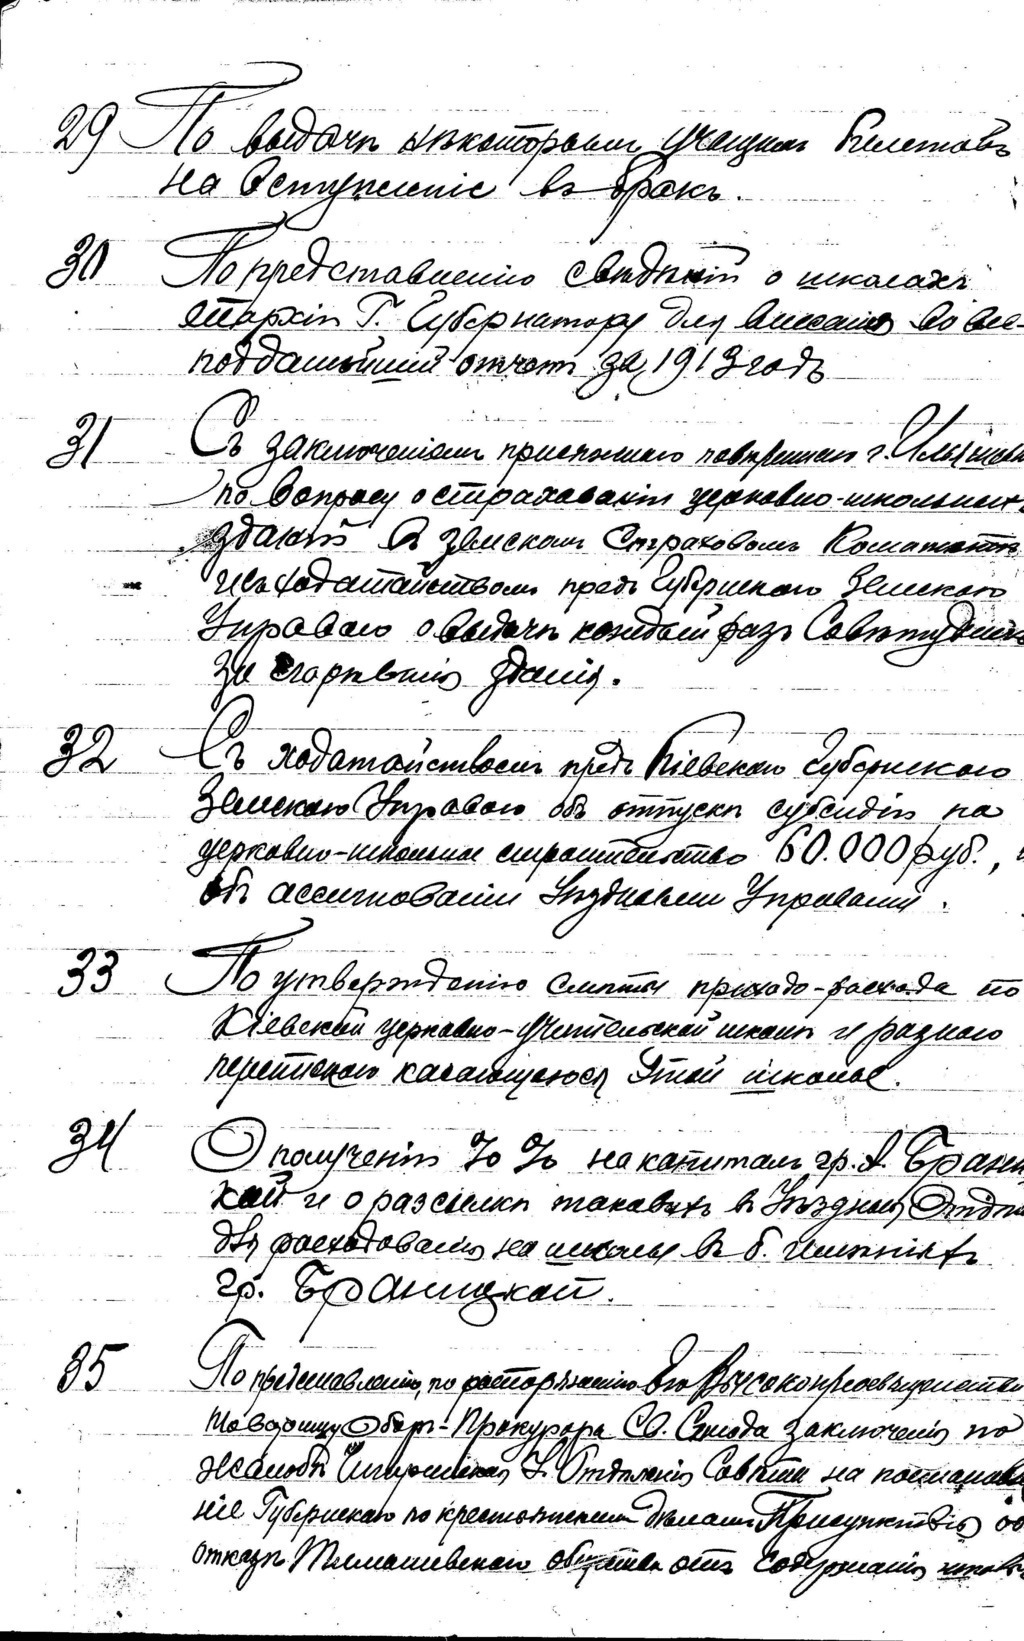 29 По выдачѣ нѣкоторымъ учащимъ билетовъ
на вступленіе въ бракъ.
30 По представленію свѣдѣній о школахъ
епархіи Г. Губернатору для внесенія во все-
подданнѣйшій отчетъ за 1913 годъ
31 Съ заключеніемъ присяжнаго повѣреннаго г.
по вопросу о страхованіи церковно-школьныхъ
зданій въ Земскомъ Страховомъ Комитетѣ
и съ ходатайствомъ предъ Губернскою Земскою
Управою о выдачѣ каждый разъ Совѣту денегъ
за сгорѣвшія зданія.
32 Съ ходатайствомъ предъ Кіевскою Губернскою
Земскою Управою объ отпускѣ субсидіи на
церковно-школьное строительство 60.000 руб., и
объ ассигнованіи Уѣздными Управами.
33 По утвержденію смѣты приходо-расхода по
Кіевской церковно-учительской школѣ и разною
перепискою касающеюся этой школы.
34 О полученіи %% на капиталъ гр. А. Браниц-
кой и о разсылкѣ таковыхъ въ Уѣздныя Отдѣл
для расходованія на школы въ б. имѣніяхъ
гр. Браницкой.
35 По представленію, по распоряженію Его Высокопреосвященства
Товарищу Оберъ-Прокурора Св. Синода заключенія по
жалобѣ Чигиринскаго У. Отдѣленія Совѣта на постановле
ніе Губернскаго по крестьянскимъ дѣламъ Присутствія об
отказѣ общества отъ содержанія школы